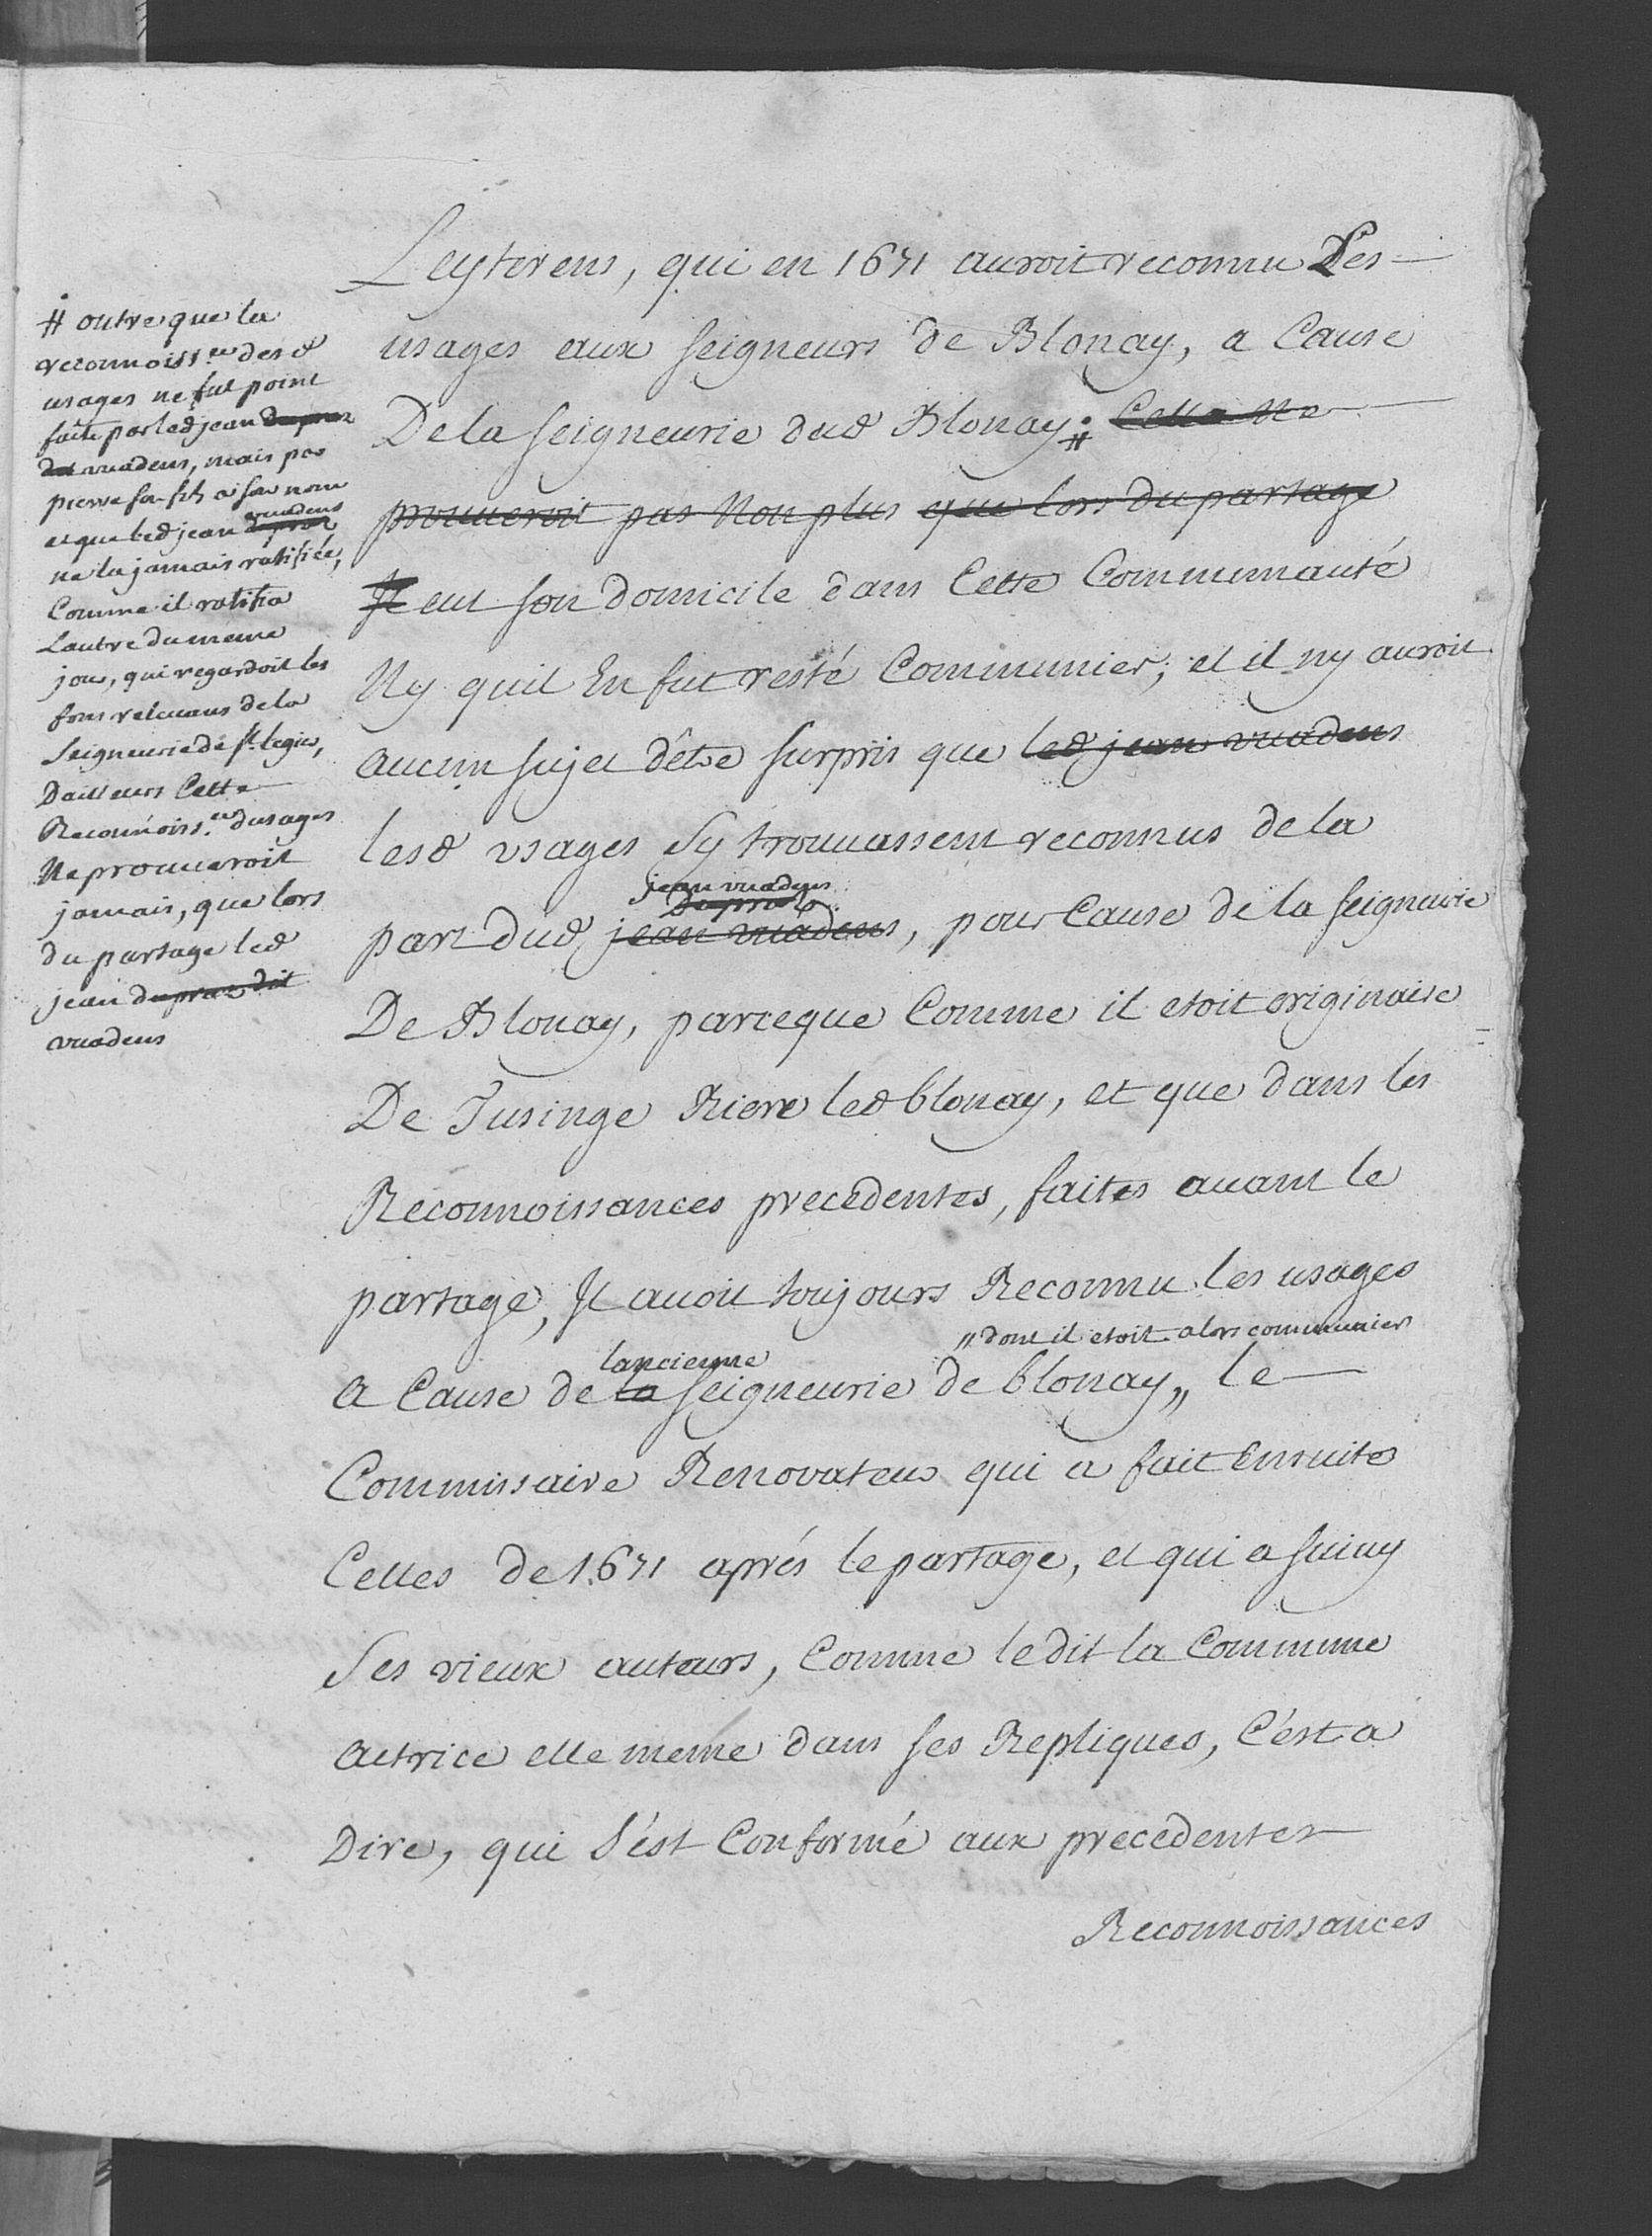 Leyterens, qui en 1671 auroit reconnu Les
usages aux seigneurs de Blonay, a Cause
De la seigneurie dud Blonay; # Cette Ne
prouueroit pas Non plus que lors du partage
Il eut son domicile dans Cette Communauté
Ny quil En fut resté Communier; et il ny auroit
aucun sujet d'être surpris que led jean vuadens
lesd usages Sy trouuassent reconnus de la
jean vuadens
Dupraz
part dud jean vuadens, pour Cause de la seigneurie
De Blonay, parceque Comme il etoit originaire
De Tusinge Riere led blonay, et que dans les
Reconnoissances precedentes, faites auant le
partage, Il auoit toujours Reconnu les usages
lancienne „ dont il etoit alors communier
a Cause de la seigneurie de blonay „ le
Commissaire Renovateur qui a fait Ensuite
Celles de 1671 aprés le partage, et qui a suiuy
Ses vieux auteurs, Comme le dit la Commune
actrice elle meme dans ses Repliques, C'est a
Dire, qui S'ést Conformé aux precedentes
Reconnoissances
# outre que la
reconnoiss.ce desd
usages ne fut point
faite par led jean dupraz
dit vuadens, mais par
pierre son fils a son nom
vuadens
et que led jean dupraz
ne la jamais ratifiée,
Comme il ratifia
Lautre du meme
jour, qui regardoit les
fons releuans de la
Seigneurie de st legier,
Dailleurs Cette
Reconnoiss.ce dusages
Ne prouueroit
jamais, que lors
du partage led
jean dupraz dit
vuadens